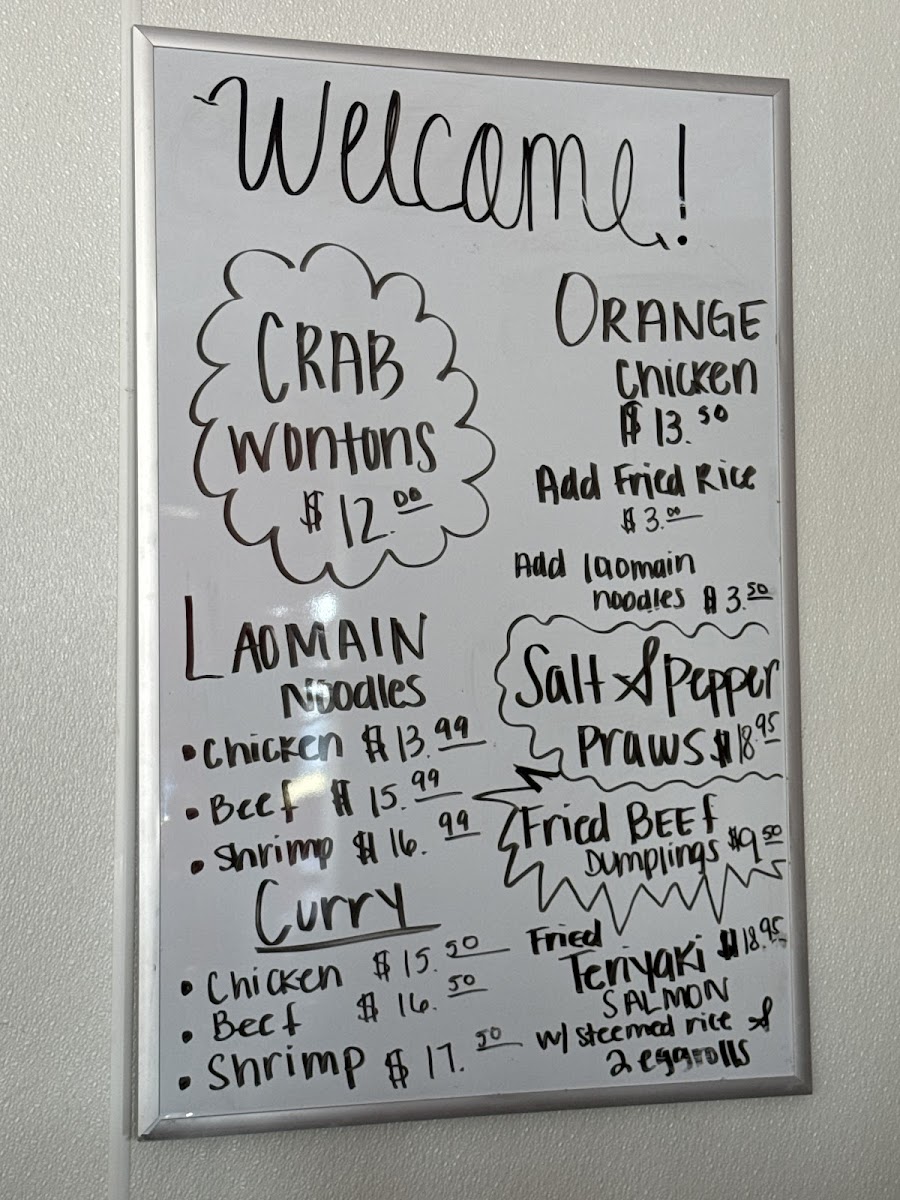 Welcome!
CRAB
Wontons
$12.00
LAOMAIN
NOODLES
• Chicken $13.99
• Beef $15.99
• Shrimp $16.99
Curry
• Chicken $15.50
• Beef $16.50
• Shrimp $17.50
ORANGE
Chicken
$13.50
Add Fried Rice
$3.00
Add laomain
noodles $3.50
Salt & Pepper
Praws $18.95
Fried BEEF
Dumplings $9.50
Fried
Teriyaki $18.95
SALMON
w/ steemed rice &
2 eggrolls